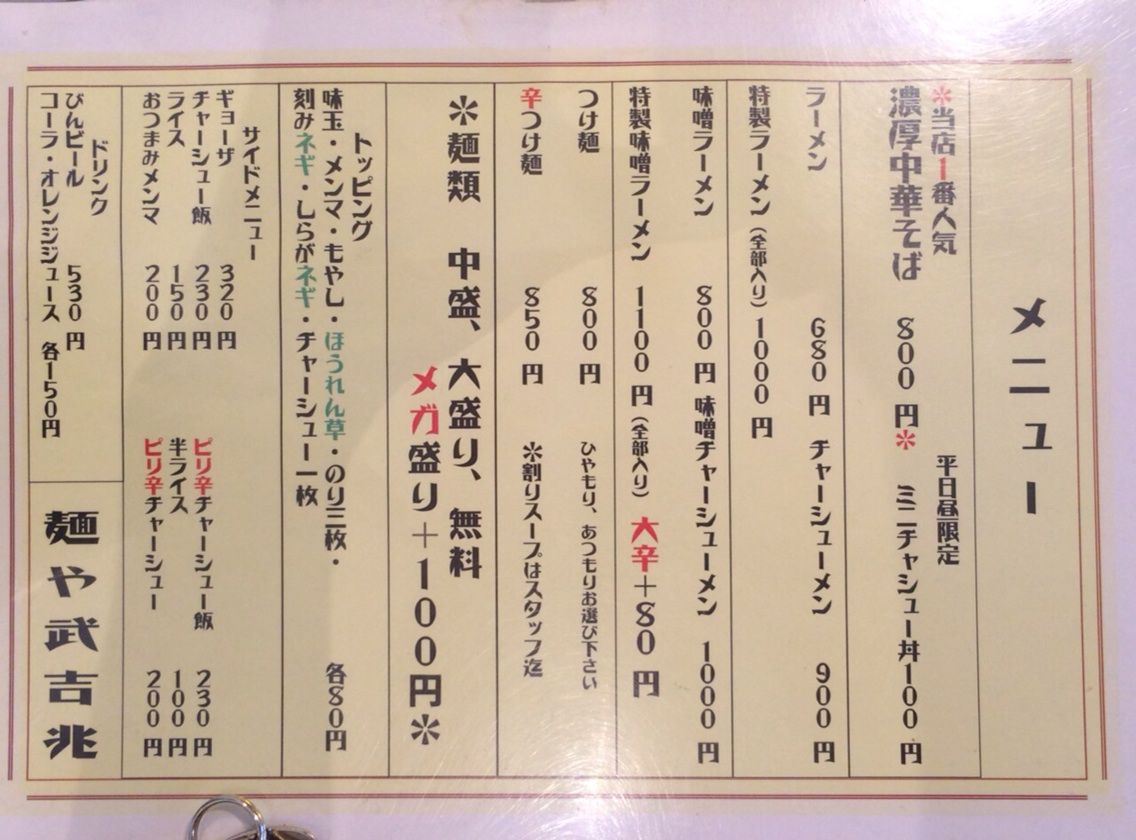 メニュー
＊当店1番人気　平日昼限定
濃厚中華そば　800円＊　ミニチャシュー丼100円
ラーメン　680円　チャーシューメン　900円
特製ラーメン（全部入り）1000円
味噌ラーメン　800円　味噌チャーシューメン　1000円
特製味噌ラーメン　1100円（全部入り）大辛＋80円
つけ麺　800円　ひやもり、あつもりお選び下さい
辛つけ麺　850円　＊割りスープはスタッフ迄
＊麺類　中盛、大盛り、無料
メガ盛り＋100円＊
トッピング
味玉・メンマ・もやし・ほうれん草・のり三枚・　各80円
刻みネギ・しらがネギ・チャーシュー一枚
サイドメニュー
ギョーザ　320円
チャーシュー飯　230円　ピリ辛チャーシュー飯　230円
ライス　150円　半ライス　100円
おつまみメンマ　200円　ピリ辛チャーシュー　200円
ドリンク
びんビール　530円
コーラ・オレンジジュース　各150円
麺や武吉兆